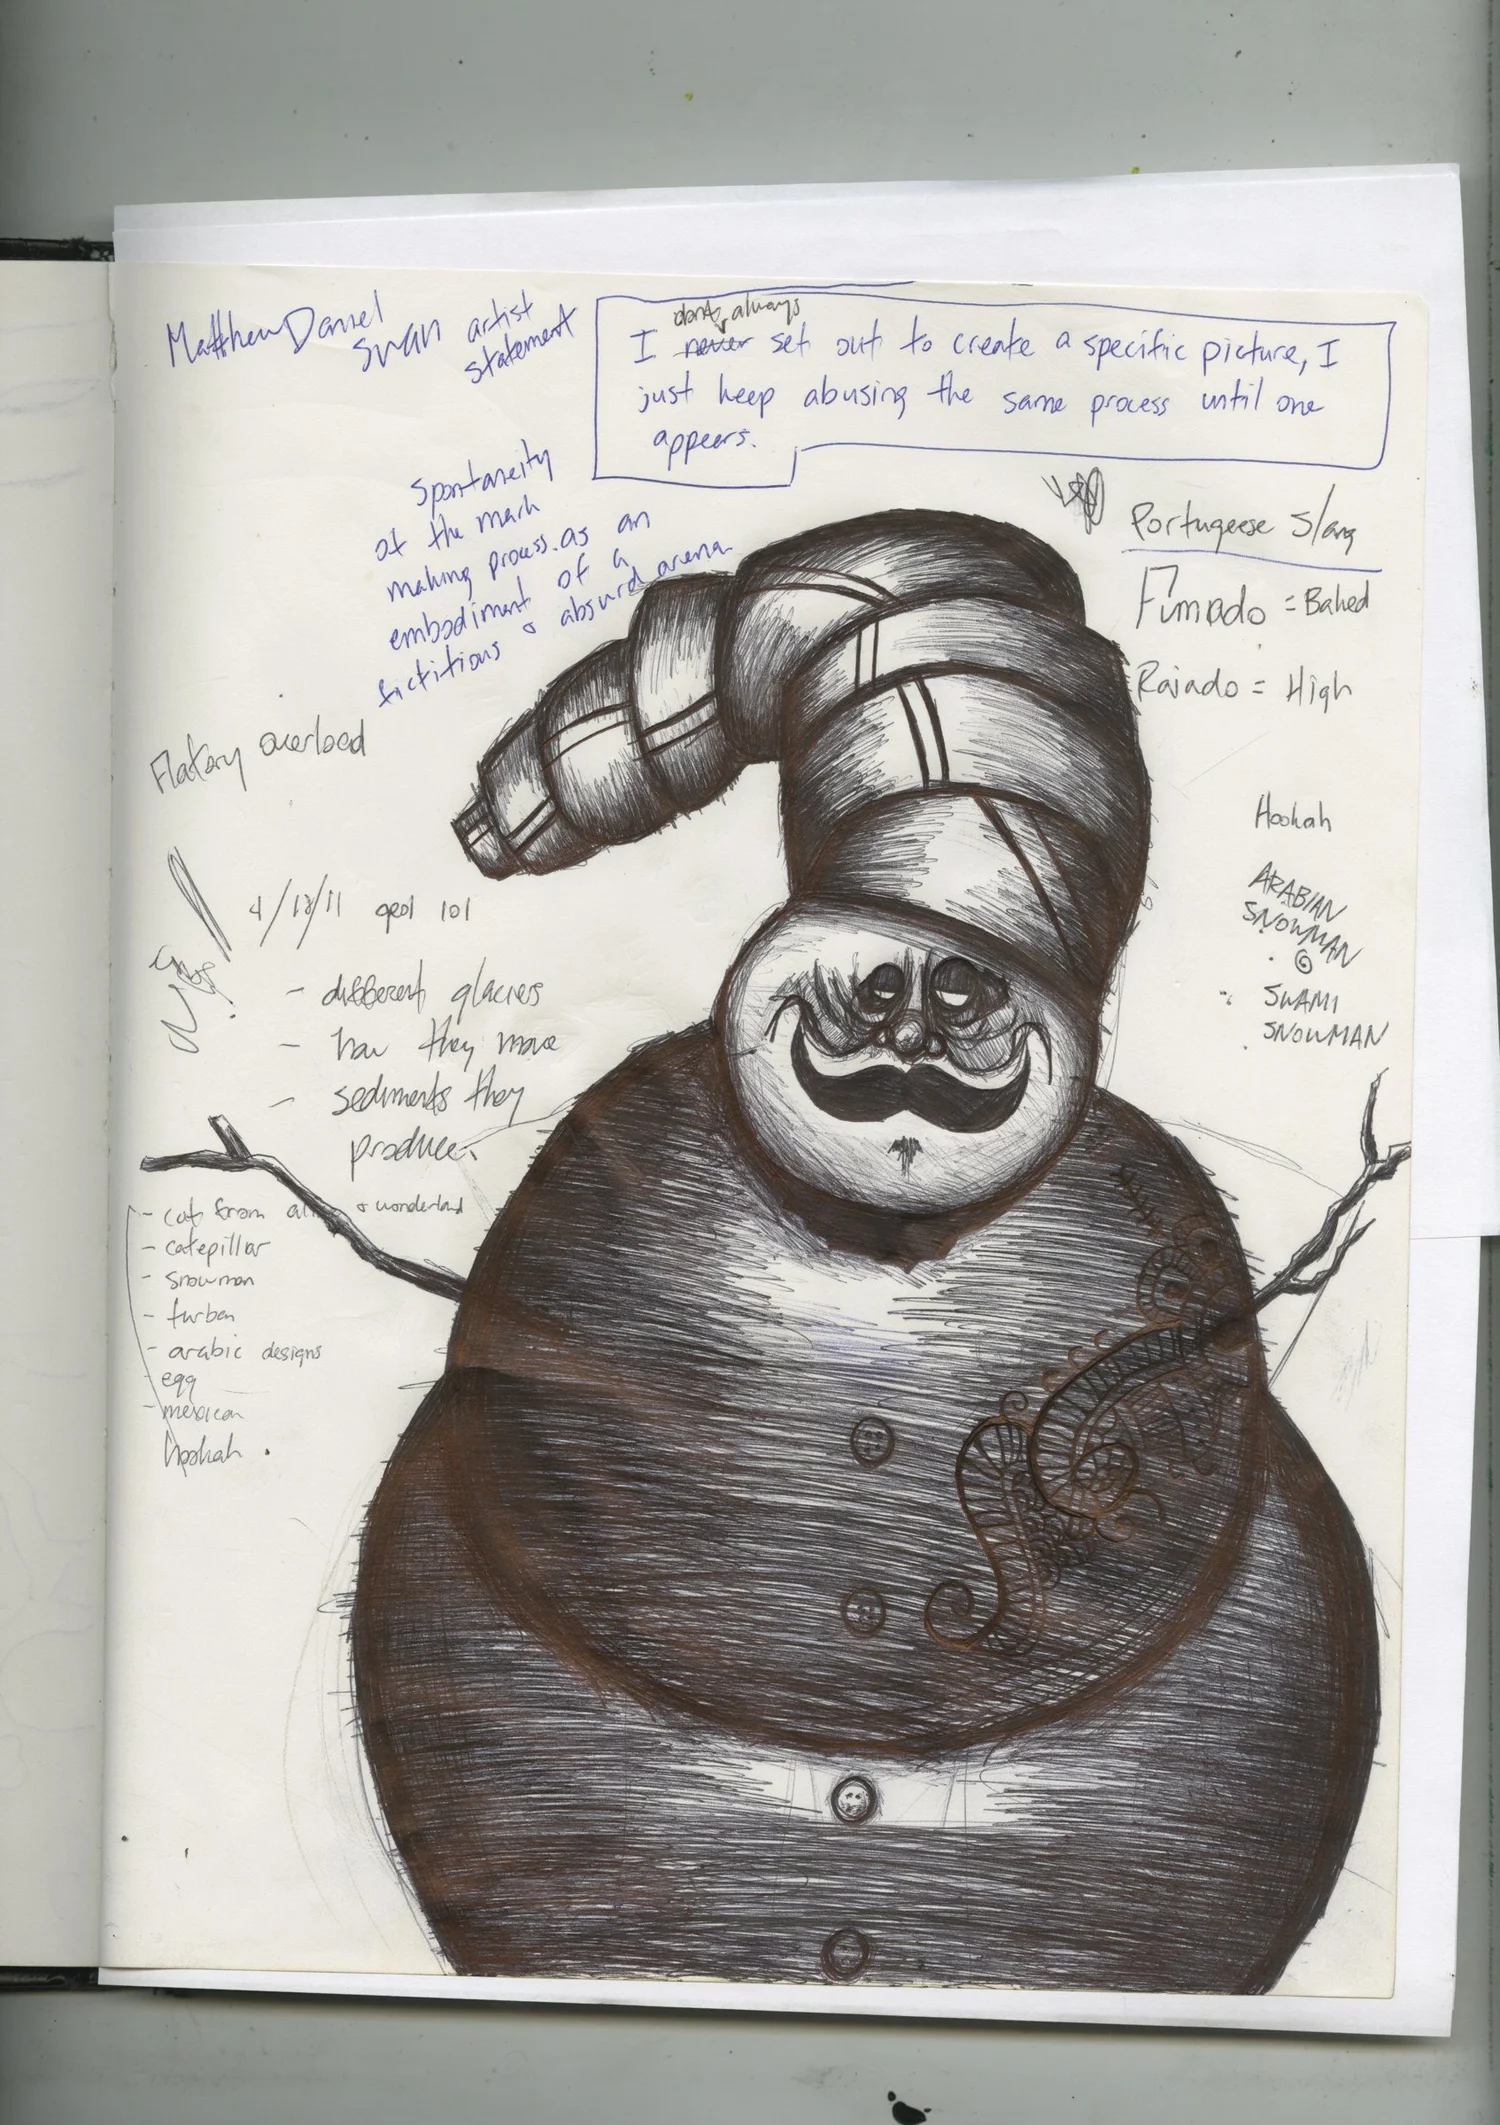 Matthew Daniel
swan artist
statement
dont always
I never set out to create a specific picture, I
just keep abusing the same process until one
appears.
Spontaneity
of the mark
making process. as an
embodiment of a
fictitious & absurd arena
Portugeese Slang
Fumado = Baked
Raiado = High
Flatory overload
Hookah
ARABIAN
SNOWMAN
SWAMI
SNOWMAN
4/18/11 geol 101
- different glaciers
- how they move
- sediments they
produce.
- cat from & wonderland
- catepillar
- snowman
- turban
- arabic designs
- egg
- mexican
hookah .